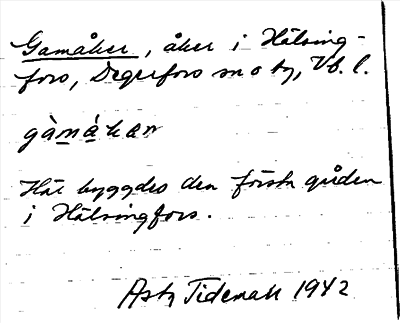 Gamåker, åker i Hälsing-
fors, Degerfors sn o by, Vb. l.
gàmákær
Här byggdes den första gården
i Hälsingfors.
Tideman 1942